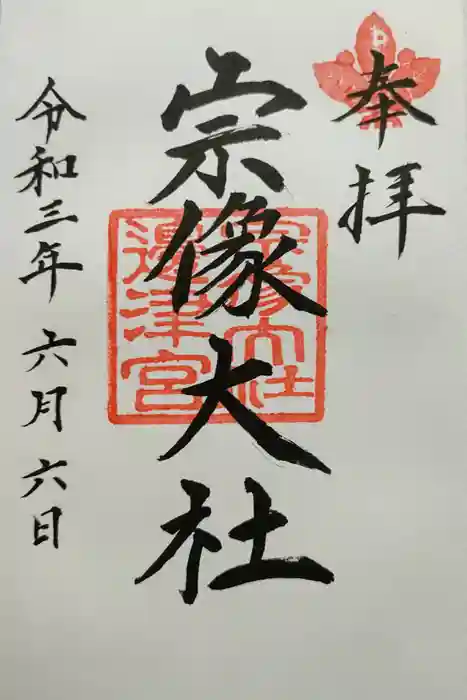 奉拝
宗像大社
宗像大社
邊津宮
令和三年 六月六日